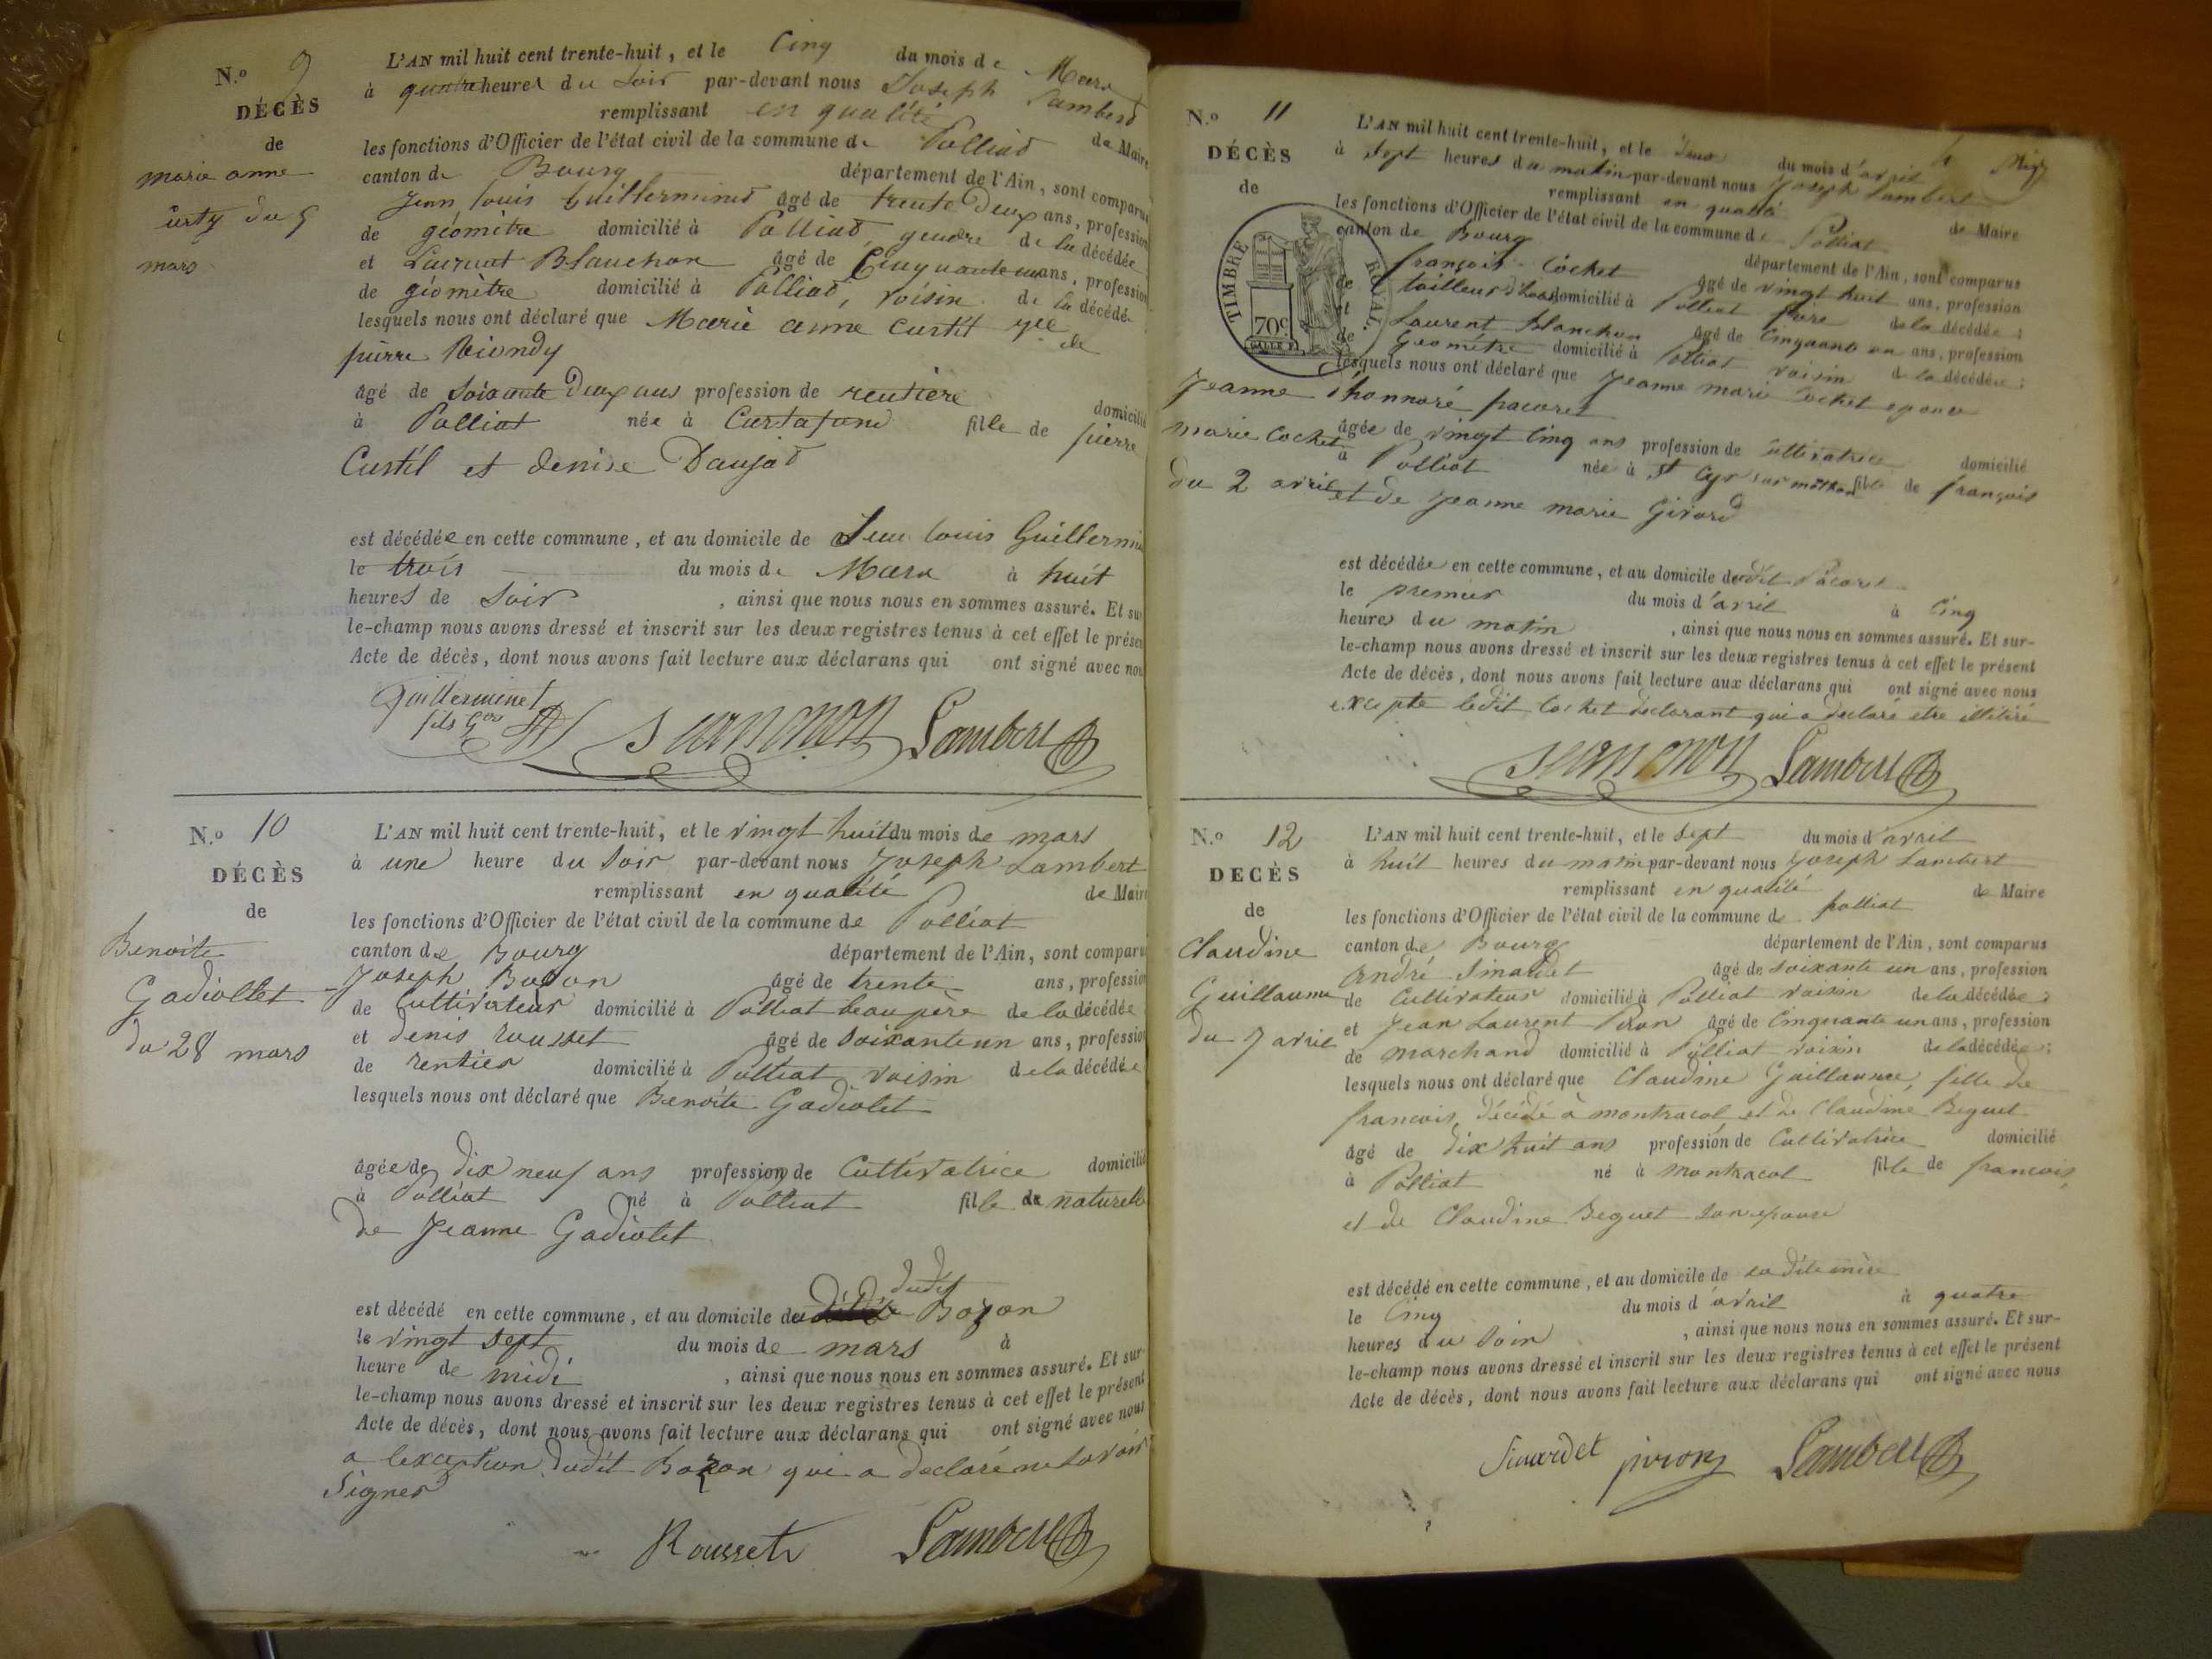 N.o 9
DÉCÈS
de
marie anne
du 5
mars
L'AN mil huit cent trente-huit, et le Cinq du mois de Mars
à quatre heures du soir par-devant nous Joseph Lambert
remplissant en qualité de Maire
les fonctions d'Officier de l'état civil de la commune de Polliat
canton de Bourg département de l'Ain, sont comparus
Jean louis Guillerminet âgé de trente Deux ans, profession
de géomètre domicilié à Polliat, gendre de la décédée
et Laurent Blanchon âgé de Cinquante un ans, profession
de géomètre domicilié à Polliat, voisin de la décédée
lesquels nous ont déclaré que Marie anne Curtil de
pierre Riondy
âgé de soixante Deux ans profession de rentière domicilié
à Polliat née à Curtafond fille de pierre
Curtil et denise Daujat
est décédée en cette commune, et au domicile de Jean louis Guillermin
le trois du mois de Mars à huit
heures de soir, ainsi que nous nous en sommes assuré. Et sur
le-champ nous avons dressé et inscrit sur les deux registres tenus à cet effet le présent
Acte de décès, dont nous avons fait lecture aux déclarans qui ont signé avec nous
Guillerminet
fils Lambert
N.o 10
DÉCÈS
de
Benoite
Gadiollet
du 28 mars
L'AN mil huit cent trente-huit, et le vingt huit du mois de mars
à une heure du soir par-devant nous Joseph Lambert
remplissant en qualité de Maire
les fonctions d'Officier de l'état civil de la commune de Polliat
canton de Bourg département de l'Ain, sont comparus
Joseph Bozon âgé de trente ans, profession
de Cultivateur domicilié à Polliat beaupère de la décédée
et denis rousset âgé de soixante un ans, profession
de rentier domicilié à Polliat voisin de la décédée
lesquels nous ont déclaré que Benoite Gadiolet
âgée de dix neuf ans profession de Cultivatrice domicilié
à Polliat né à Polliat fille de naturelle
de Jeanne Gadiolet
dudit
est décédé en cette commune, et au domicile de Bozon
le vingt sept du mois de mars à
heure de midi, ainsi que nous nous en sommes assuré. Et sur-
le-champ nous avons dressé et inscrit sur les deux registres tenus à cet effet le présent
Acte de décès, dont nous avons fait lecture aux déclarans qui ont signé avec nous
a lexception dudit Bozon qui a declaré ne savoir
signer
Rousset Lambert
N.o 11
DÉCÈS
de
TIMBRE ROYAL
70c
Jeanne
marie Cochet
du 2 avril
L'AN mil huit cent trente-huit, et le deux du mois d'avril
à sept heures du matin par-devant nous Joseph Lambert
remplissant en qualité de Maire
les fonctions d'Officier de l'état civil de la commune de Polliat
canton de Bourg département de l'Ain, sont comparus
françois Cochet âgé de vingt huit ans, profession
de tailleur domicilié à Polliat frere de la décédée;
et Laurent Blanchon âgé de Cinquante un ans, profession
de Géomètre domicilié à Polliat voisin de la décédée;
lesquels nous ont déclaré que Jeanne marie Cochet epouse
d'honnoré pacoret
âgée de vingt Cinq ans profession de Cultivatrice domicilié
à Polliat née à St Cyr sur menthon fille de françois
et de Jeanne marie Girard
est décédée en cette commune, et au domicile dudit Pacoret
le premier du mois d'avril à Cinq
heures du matin, ainsi que nous nous en sommes assuré. Et sur-
le-champ nous avons dressé et inscrit sur les deux registres tenus à cet effet le présent
Acte de décès, dont nous avons fait lecture aux déclarans qui ont signé avec nous
excepte ledit Cochet declarant qui a declaré etre illitéré
Lambert
N.o 12
DECÈS
de
Claudine
Guillaume
du 7 avril
L'AN mil huit cent trente-huit, et le sept du mois d'avril
à huit heures du matin par-devant nous Joseph Lambert
remplissant en qualité de Maire
les fonctions d'Officier de l'état civil de la commune de polliat
canton de Bourg département de l'Ain, sont comparus
André Sinardet âgé de soixante un ans, profession
de Cultivateur domicilié à Polliat voisin de la décédée;
et Jean Laurent Piron âgé de Cinquante un ans, profession
de marchand domicilié à Polliat voisin de la décédée;
lesquels nous ont déclaré que Claudine Guillaume, fille de
francois, décédé à montracol et de Claudine Beguet
âgé de dix huit ans profession de Cultivatrice domicilié
à Polliat né à montracol fille de francois,
et de Claudine Beguet son epouse
est décédé en cette commune, et au domicile de sa dite mère
le Cinq du mois d'avril à quatre
heures du soir, ainsi que nous nous en sommes assuré. Et sur-
le-champ nous avons dressé et inscrit sur les deux registres tenus à cet effet le présent
Acte de décès, dont nous avons fait lecture aux déclarans qui ont signé avec nous
Sinardet piron Lambert